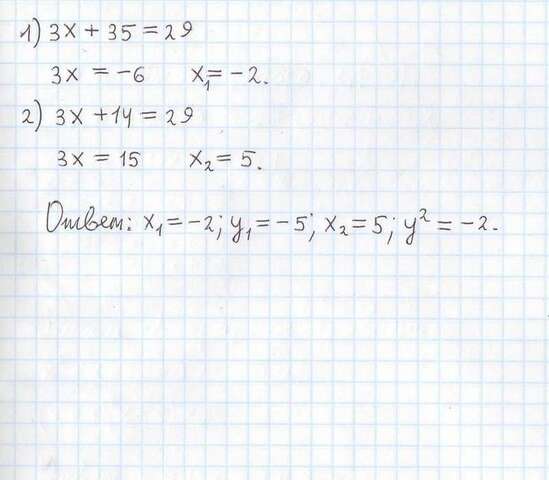 1) 3x + 35 = 29
3x = -6 x₁ = -2.
2) 3x + 14 = 29
3x = 15 x₂ = 5.
Ответ: x₁ = -2; y₁ = -5; x₂ = 5; y² = -2.